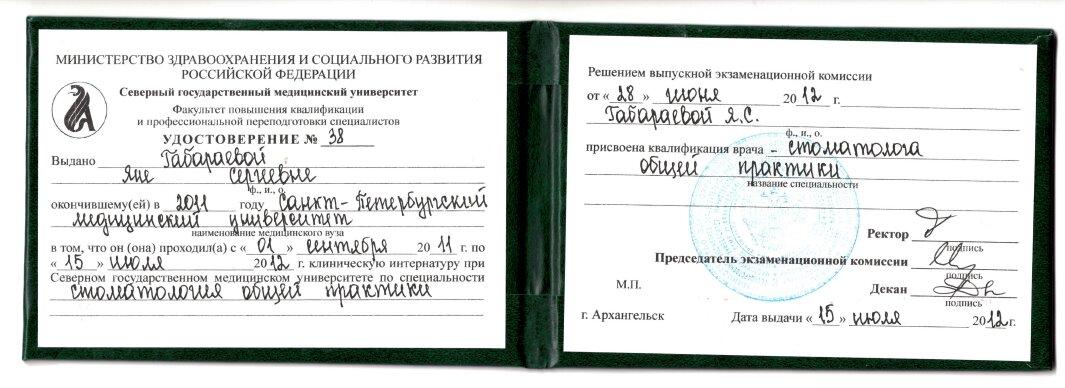 МИНИСТЕРСТВО ЗДРАВООХРАНЕНИЯ И СОЦИАЛЬНОГО РАЗВИТИЯ
РОССИЙСКОЙ ФЕДЕРАЦИИ
Северный государственный медицинский университет
Факультет повышения квалификации
и профессиональной переподготовки специалистов
УДОСТОВЕРЕНИЕ № 38
Выдано Габараевой
Яне Сергеевне
ф., и., о.
окончившему(ей) в 2011 году Санкт-Петербургский
медицинский университет
наименование медицинского вуза
в том, что он (она) проходил(а) с « 01 » сентября 2011 г. по
« 15 » июля 2012 г. клиническую интернатуру при
Северном государственном медицинском университете по специальности
стоматология общей практики
Решением выпускной экзаменационной комиссии
от « 28 » июня 2012 г.
Габараевой Я.С.
ф., и., о.
присвоена квалификация врача - стоматолога
общей практики
название специальности
Ректор
подпись
Председатель экзаменационной комиссии
подпись
М.П.
Декан
подпись
г. Архангельск Дата выдачи « 15 » июля 2012 г.